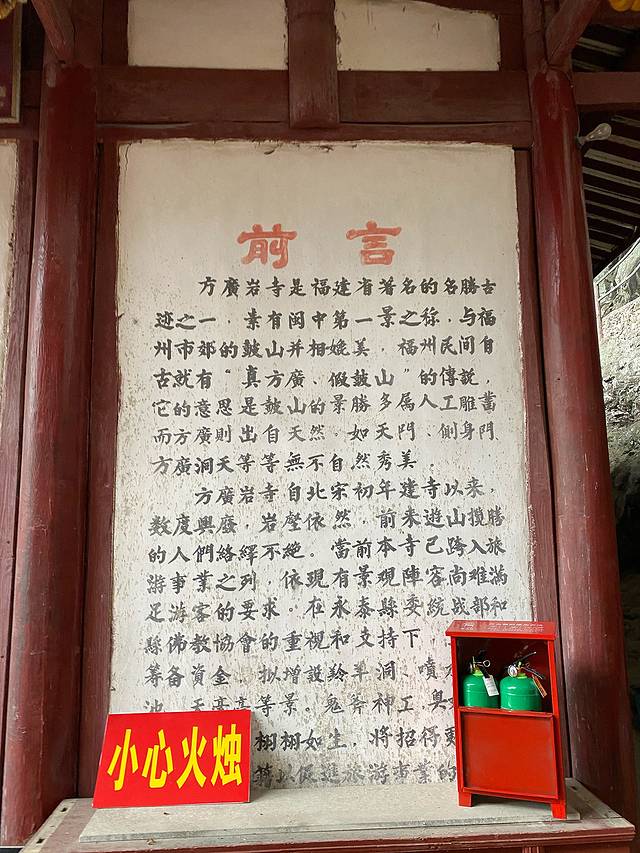 前言
方廣岩寺是福建省著名的名勝古
迹之一，素有闽中第一景之称，与福
州市郊的鼓山并相媲美，福州民间自
古就有“真方廣、假鼓山”的傳説，
它的意思是鼓山的景勝多属人工雕凿
而方廣則出自天然，如天門、側身門
方廣洞天等等無不自然秀美．
方廣岩寺自北宋初年建寺以来，
数度興廢，岩壑依然，前来遊山攬勝
的人們絡繹不絶。當前本寺已跨入旅
游事業之列，依現有景观陣容尚难滿
足游客的要求。在永泰縣委統战部和
縣佛教協會的重視和支持下
筹备資金，拟增設羚羊洞、噴
池、天高亭等景。鬼斧神工
栩栩如生，將招得更
以促進旅游事業的
小心火烛